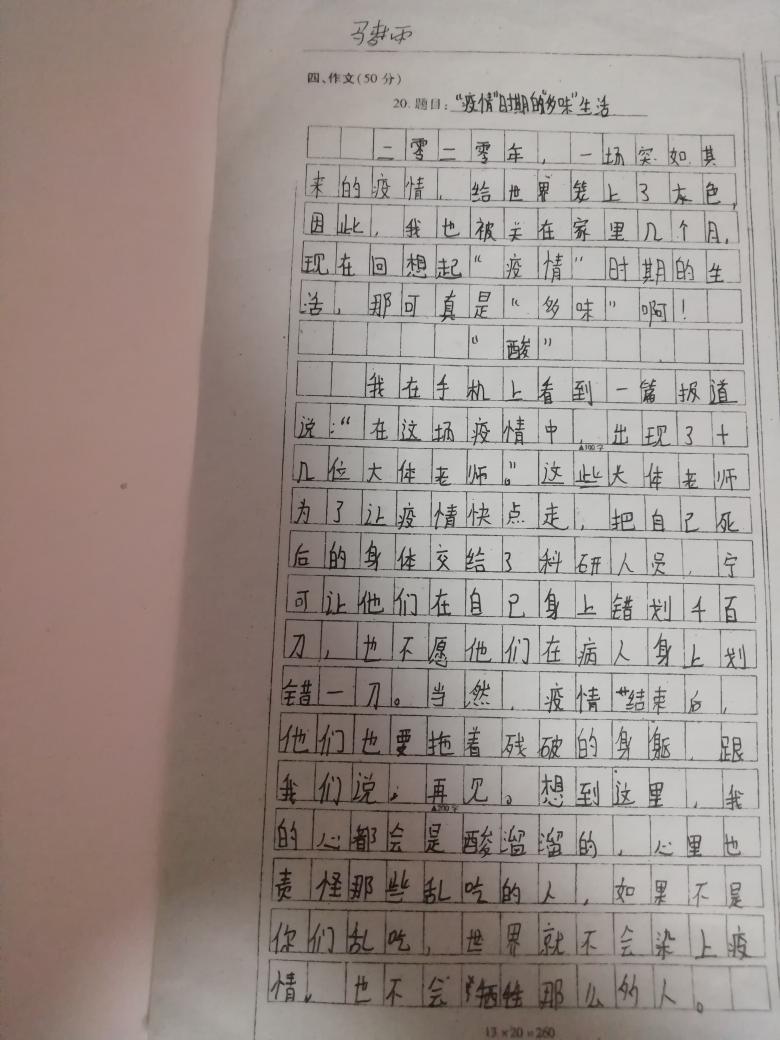 马梦雨
四、作文(50分)
20. 题目："疫情"时期的"多味"生活
二零二零年，一场突如其
来的疫情，给世界染上了灰色，
因此，我也被关在家里几个月，
现在回想起"疫情"时期的生
活，那可真是"多味"啊！
"酸"
我在手机上看到一篇报道
说："在这场疫情中，出现了十
▲100字
几位大体老师。"这些大体老师
为了让疫情快点走，把自己死
后的身体交给了科研人员，宁
可让他们在自己身上错划千百
刀，也不愿他们在病人身上划
错一刀。当然，疫情结束后，
他们也要拖着残破的身躯，跟
我们说：再见。想到这里，我
▲200字
的心都会是酸溜溜的，心里也
责怪那些乱吃的人，如果不是
你们乱吃，世界就不会染上疫
情，也不会牺牲那么多人。
13×20=260